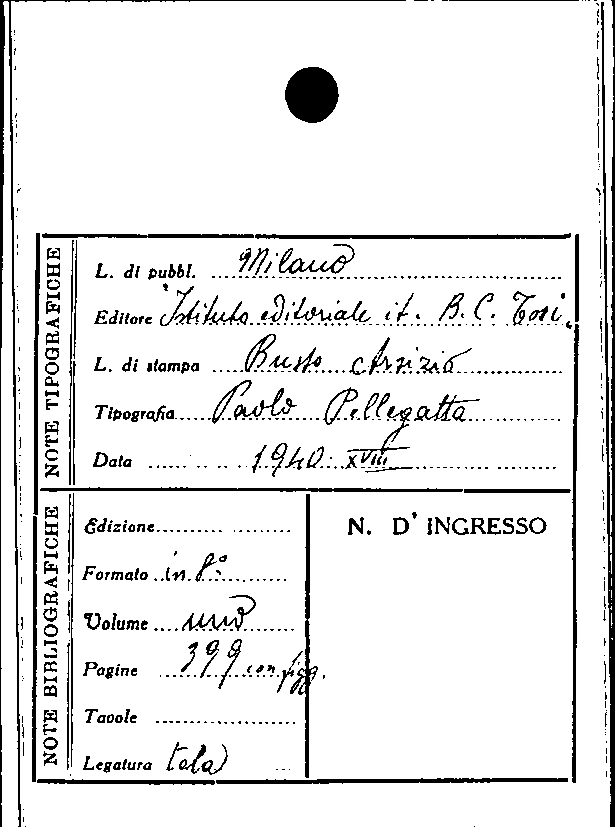 NOTE TIPOGRAFICHE
L. di pubbl. Milano
Editore Istituto editoriale it. B. C. Tosi.
L. di stampa Busto Arsizio
Tipografia Paolo Pellegatta
Data 1940 XVIII
NOTE BIBLIOGRAFICHE
Edizione
Formato in 8°
Volume uno
Pagine 399 con figg.
Tavole
Legatura tela
N. D' INGRESSO